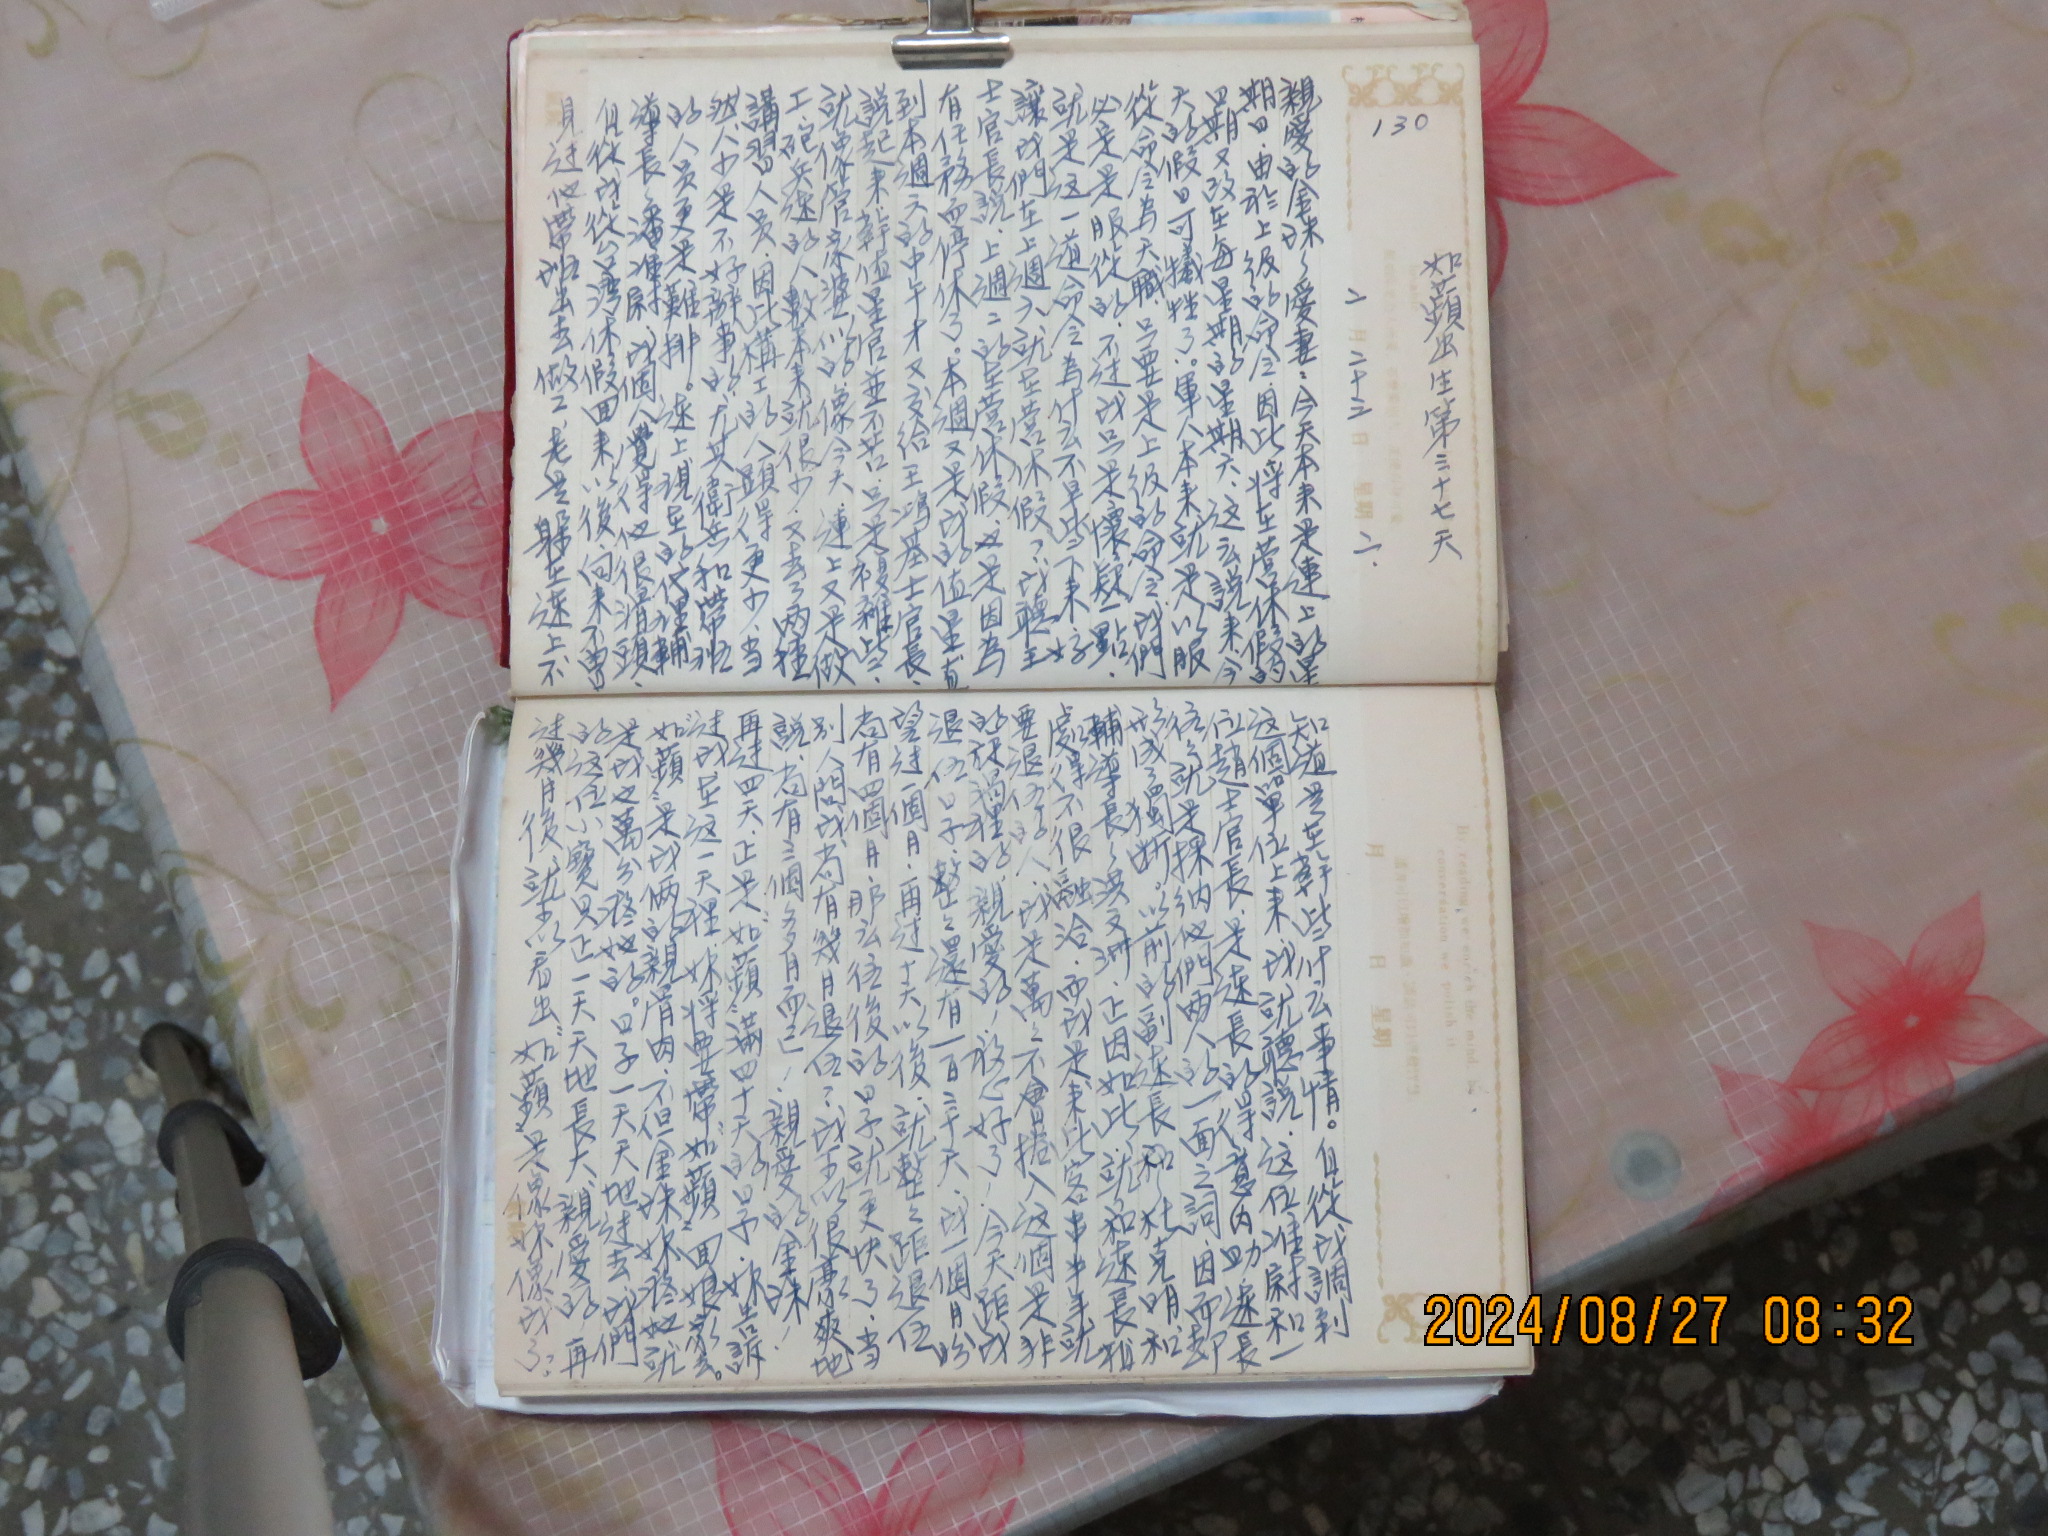 130
如蘋出生第三十七天
二月二十三日 星期二
親愛的金珠、愛妻:今天本來是連上的星
期日,由於上級的命令,因此將在營休假的星
期又改在每星期的星期六、這么說來,今
天的假日可犧牲了。軍人本來就是以服
從命令為天職,只要是上級的命令,我們
必是是服從的,不過我只是懷疑一點,
就是这一道命令為什么不早些下來,好
讓我們在上週六就在營休假?我聽王
士官長說,上週二的在營休假,也是因為
有任務而停休了。本週又是我的值星直
到本週六的中午才又交給王鴻基士官長,
說起來,幹值星官並不苦,只是複雜些,
就像管家婆似的,像今天,連上又是做
工,砲兵連的人數本來就很少,又去了兩種
講習人員,因此構工的人顯得更少,當
然人少是不好辦事的,尤其衛兵和帶班
的人員更是難排。連上,現在的代理輔
導長、潘準尉,我個人覺得他很滑頭,
自從我從台灣休假回來以後,向來不曾
見过他帶班出去做工,老是躲在連上不
知道是在幹些什么事情。自從我調到
这個單位上來,我就聽說,这位准尉和一
位趙士官長,是連長的得意內助,連長
往往就是採納他們兩人的一面之詞,因而都
形成了獨斷,以前的副連長和杜克明,和
輔導長、洪文珊,正因如此,就和連長相
處得不很融洽,而我是來此客串半年就
要退伍的人,我是萬萬不會捲入这個是非
的旋禍裡的,親愛的!放心好了!今天距我
退伍日子,整整還有一百二十天,我一個月盼
望过一個月,再过十天以後,就整整距退伍
尚有四個月,那么往後的日子就更快了,當
別人問我尚有幾月退伍?我可以很豪爽地
說,尚有三個多月而已!親愛的金珠!
再过四天,正是“如蘋”滿四十天的日子,妳告訴
过我在这一天裡,妳將要帶“如蘋”回娘家去。
“如蘋”是我俩的親骨肉,不但金珠妳疼她就
是我也萬分疼她的。日子一天天地过去,我們
的这位小寶貝正一天天地長大,親愛的!再
过幾月後,就可以看出“如蘋”是像妳像我了?
2024/08/27 08:32